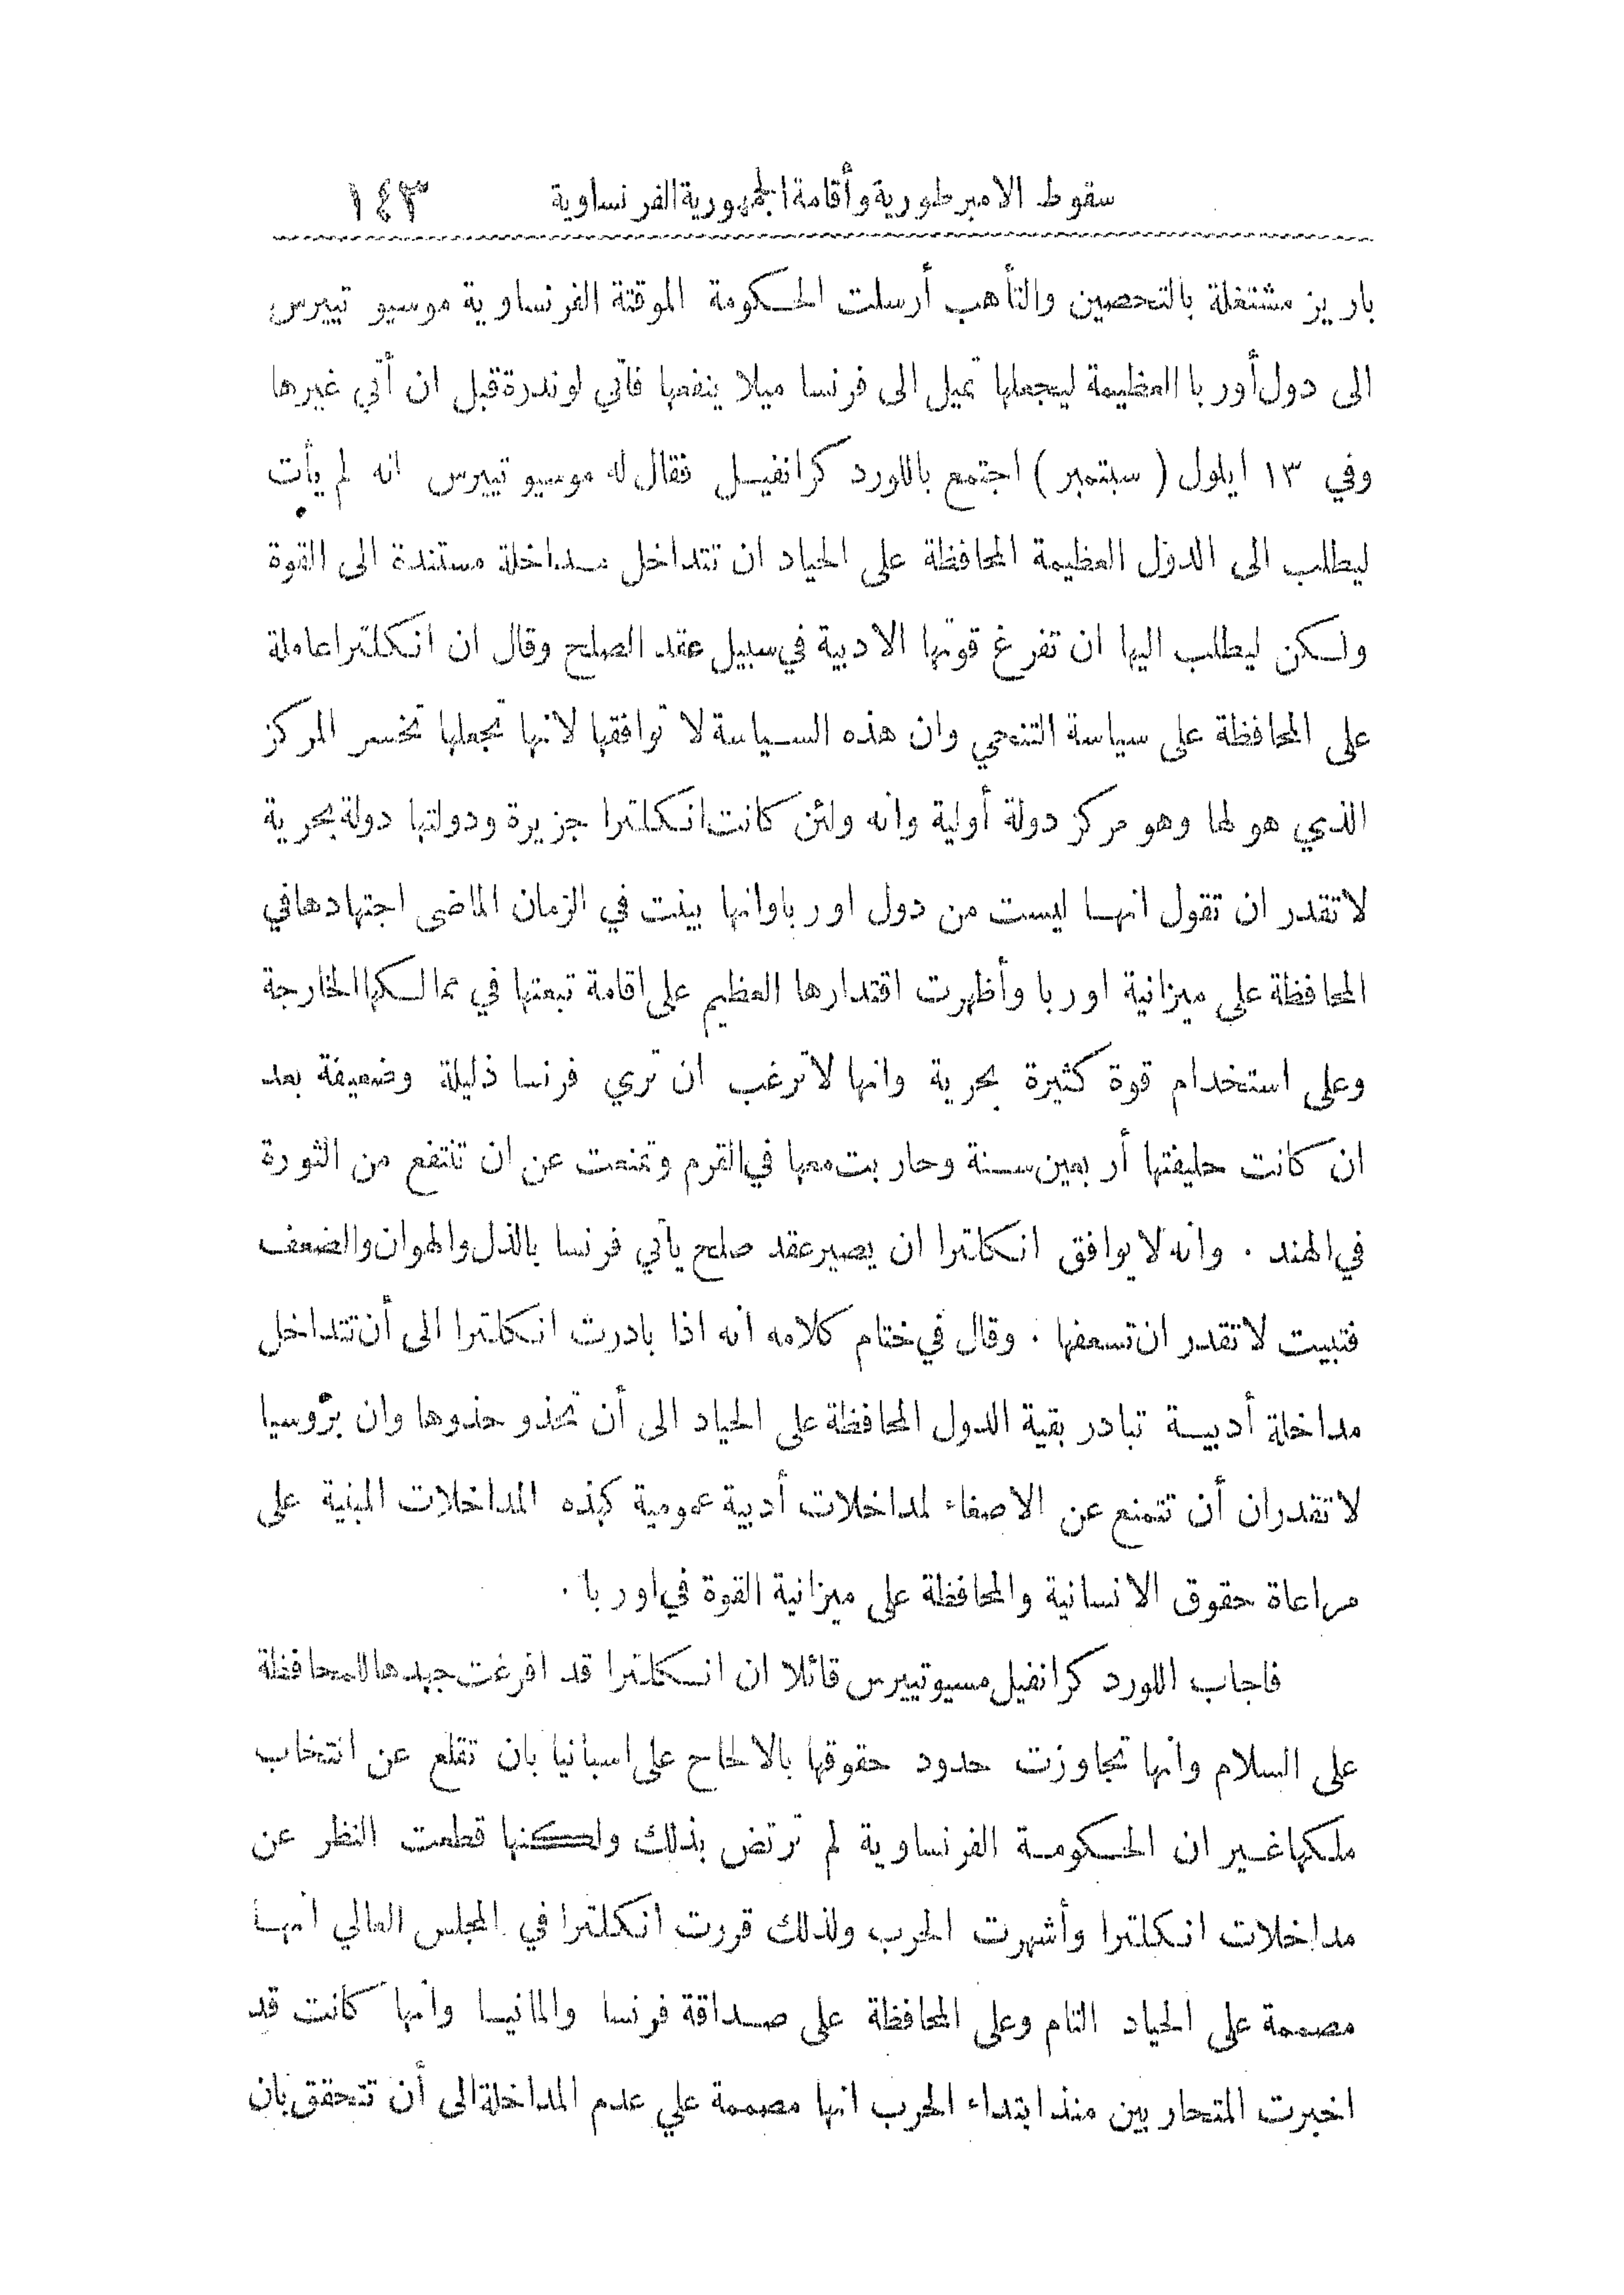 سقوط الامبرطورية وأقامة الجمهورية الفرنساوية ١٤٣
باريز مشتغلة بالتحصين والتأهب أرسلت الحكومة الموقتة الفرنساوية موسيو تييرس
الى دول أوربا العظيمة ليجعلها تميل الى فرنسا ميلا ينفعها فأتي لوندرة قبل ان أتي غيرها
وفي ١٣ ايلول ( سبتمبر ) اجتمع باللورد كرانفيل فقال له موسيو تييرس انه لم يأت
ليطلب الى الدول العظيمة المحافظة على الحياد ان تتداخل مداخلة مستندة الى القوة
ولكن ليطلب اليها ان تفرغ قوتها الادبية في سبيل عقد الصلح وقال ان انكلترا عاملة
على المحافظة على سياسة التنحي وان هذه السياسة لا توافقها لانها تجعلها تخسر المركز
الذي هو لها وهو مركز دولة أولية وانه ولئن كانت انكلترا جزيرة ودولتها دولة بحرية
لا تقدر ان تقول انها ليست من دول اوربا وانها بينت في الزمان الماضى اجتهادها في
المحافظة على ميزانية اوربا وأظهرت اقتدارها العظيم على اقامة تبعتها في ممالكها الخارجة
وعلى استخدام قوة كثيرة بحرية وانها لا ترغب ان تري فرنسا ذليلة وضعيفة بعد
ان كانت حليفتها أربعين سنة وحاربت معها في القرم وتمنعت عن ان تنتفع من الثورة
في الهند . وانه لا يوافق انكلترا ان يصير عقد صلح يأتي فرنسا بالذل والهوان والضعف
فتبيت لا تقدر ان تسعفها . وقال في ختام كلامه انه اذا بادرت انكلترا الى أن تتداخل
مداخلة أدبية تبادر بقية الدول المحافظة على الحياد الى أن تحذو حذوها وان بروسيا
لا تقدران أن تتمنع عن الاصغاء لمداخلات أدبية عمومية كهذه المداخلات المبنية على
مراعاة حقوق الانسانية والمحافظة على ميزانية القوة في اوربا .
فاجاب اللورد كرانفيل مسيو تييرس قائلا ان انكلترا قد افرغت جهدها للمحافظة
على السلام وانها تجاوزت حدود حقوقها بالالحاح على اسبانيا بان تقلع عن انتخاب
ملكها غير ان الحكومة الفرنساوية لم ترتض بذلك ولكنها قطعت النظر عن
مداخلات انكلترا وأشهرت الحرب ولذلك قررت انكلترا في المجلس العالي انها
مصممة على الحياد التام وعلى المحافظة على صداقة فرنسا والمانيا وانها كانت قد
اخبرت المتحاربين منذ ابتداء الحرب انها مصممة علي عدم المداخلة الى أن تتحقق بان